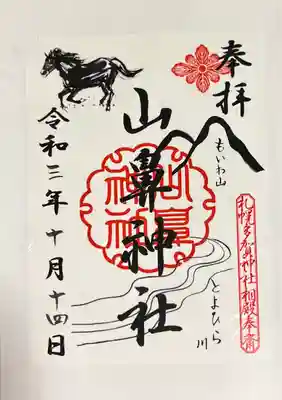 奉拝
もいわ山
札幌多賀神社相殿奉斎
山鼻神社
とよひら川
令和三年十月十四日